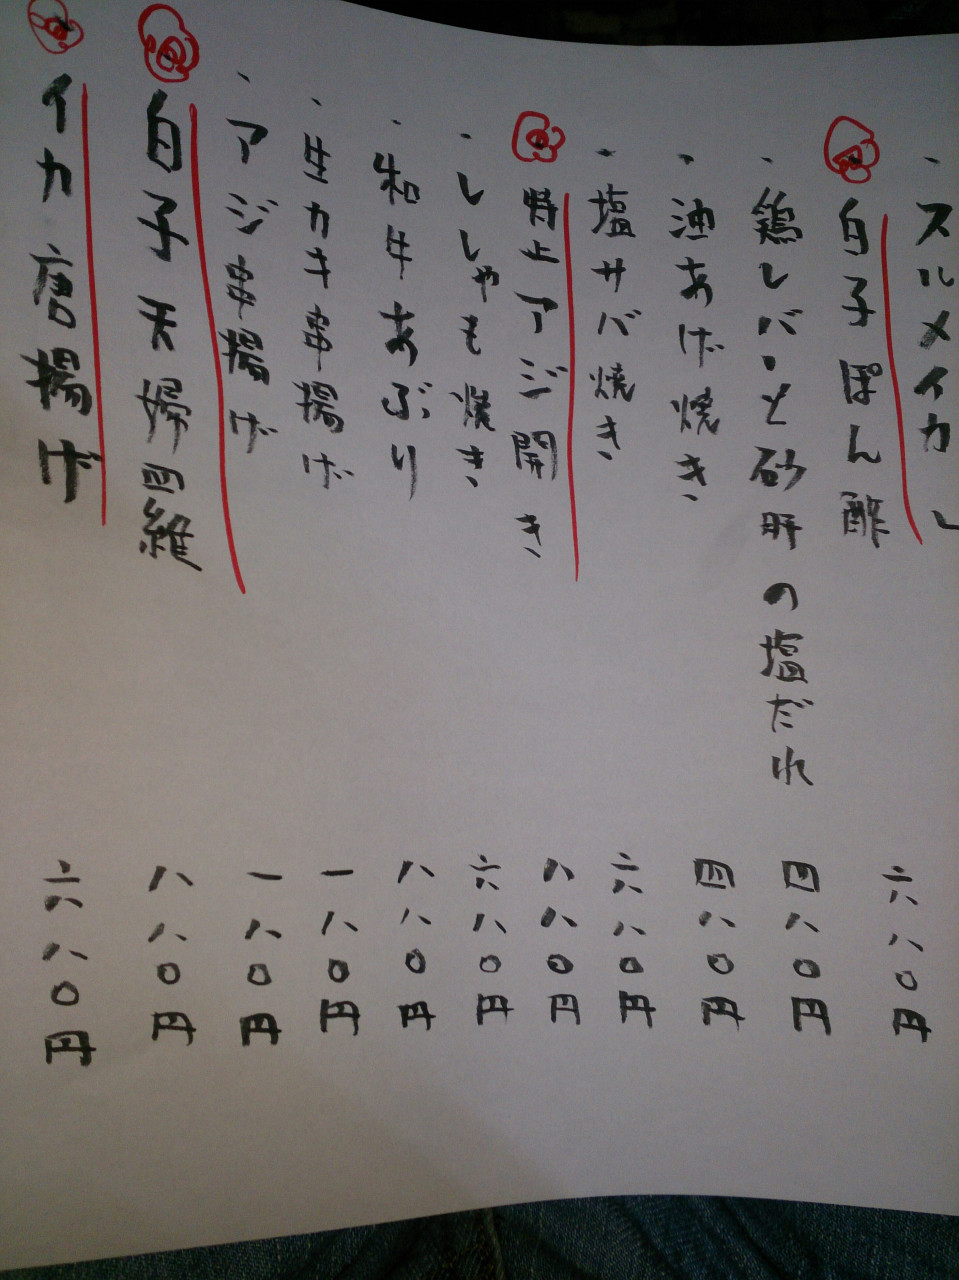 ・スルメイカ
白子ぽん酢 六八〇円
・鶏レバーと砂肝の塩だれ 四八〇円
・油あげ焼き 四八〇円
・塩サバ焼き 六八〇円
特上アジ開き 八八〇円
・ししゃも焼き 六八〇円
・和牛あぶり 八八〇円
・生カキ串揚げ 一八〇円
・アジ串揚げ 一八〇円
白子天婦羅 八八〇円
イカ唐揚げ 六八〇円